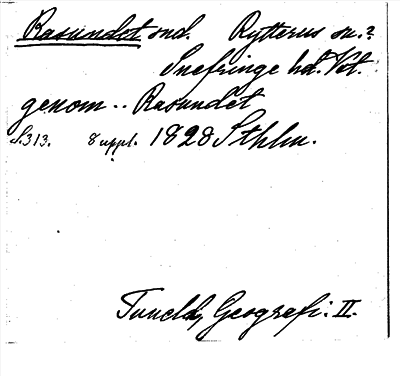 Rasundet snd. Rytterns sn.?
Snefringe hd. Vtl.
genom .. Rasundet
S.313. 8 uppl. 1828 Sthlm.
Tuneld, Geografi. II.